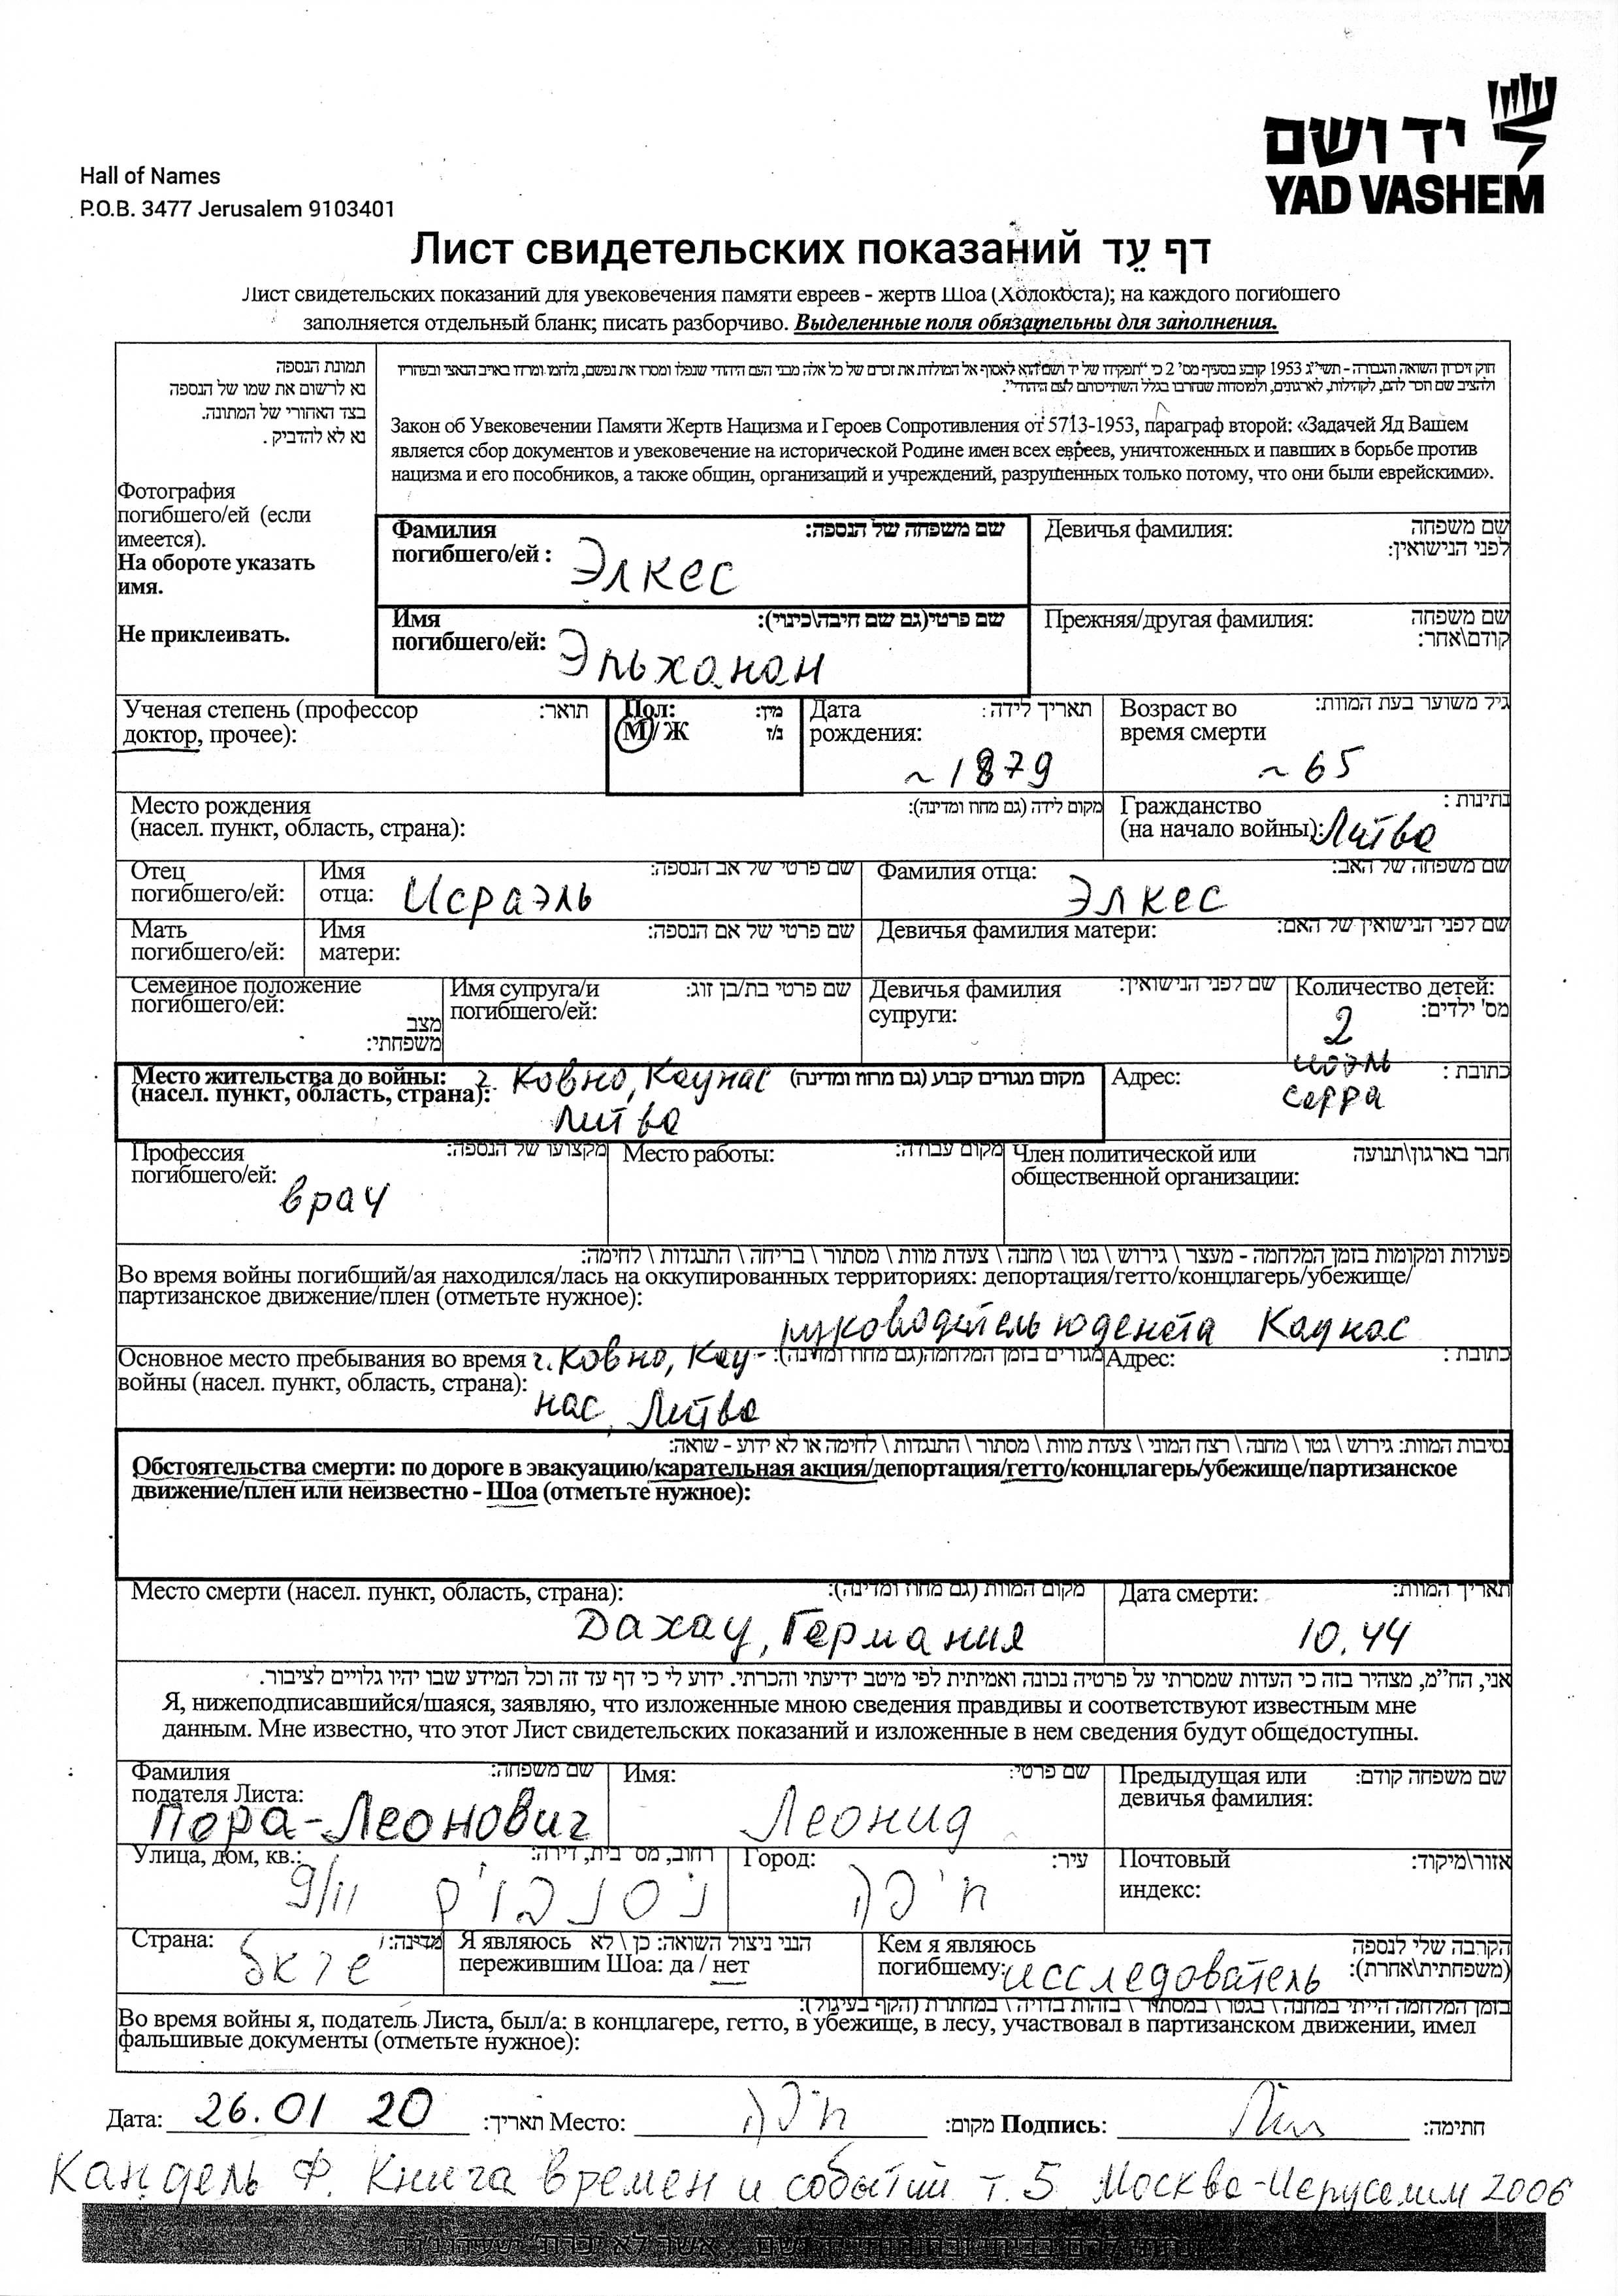 יד ושם
YAD VASHEM
Hall of Names
P.O.B. 3477 Jerusalem 9103401
Лист свидетельских показаний דף עֵד
Лист свидетельских показаний для увековечения памяти евреев - жертв Шоа (Холокоста); на каждого погибшего
заполняется отдельный бланк; писать разборчиво. Выделенные поля обязательны для заполнения.
תמונת הנספה
נא לרשום את שמו של הנספה
בצד האחורי של המתונה.
נא לא להדביק .
Фотография
погибшего/ей (если
имеется).
На обороте указать
имя.
Не приклеивать.
חוק זיכרון השואה והגבורה - תשי"ג 1953 קובע בסעיף מס' 2 כי "תפקידו של יד ושם הוא לאסוף אל המולדת את זכרם של כל אלה מבני העם היהודי שנפלו ומסרו את נפשם, נלחמו ומרדו באויב הנאצי ובעוזריו
ולהציב שם וזכר להם, לקהילות, לארגונים, ולמוסדות שחרבו בגלל השתייכותם לעם היהודי".
Закон об Увековечении Памяти Жертв Нацизма и Героев Сопротивления от 5713-1953, параграф второй: «Задачей Яд Вашем
является сбор документов и увековечение на исторической Родине имен всех евреев, уничтоженных и павших в борьбе против
нацизма и его пособников, а также общин, организаций и учреждений, разрушенных только потому, что они были еврейскими».
Фамилия שם משפחה של הנספה:
погибшего/ей : Элкес
Девичья фамилия: שם משפחה
לפני הנישואין:
Имя שם פרטי(גם שם חיבה\כינוי):
погибшего/ей: Эльханан
Прежняя/другая фамилия: שם משפחה
קודם\אחר:
Ученая степень (профессор תואר:
доктор, прочее):
Пол: מין:
М/ Ж ז/נ
Дата תאריך לידה:
рождения:
~ 1879
Возраст во גיל משוער בעת המוות:
время смерти
~ 65
Место рождения מקום לידה (גם מחוז ומדינה):
(насел. пункт, область, страна):
Гражданство נתינות :
(на начало войны): Литва
Отец
погибшего/ей:
Имя שם פרטי של אב הנספה:
отца: Исраэль
Фамилия отца: שם משפחה של האב:
Элкес
Мать
погибшего/ей:
Имя שם פרטי של אם הנספה:
матери:
Девичья фамилия матери: שם לפני הנישואין של האם:
Семейное положение
погибшего/ей:
מצב
משפחתי:
Имя супруга/и שם פרטי בת/בן זוג:
погибшего/ей:
Девичья фамилия שם לפני הנישואין:
супруги:
Количество детей:
מס' ילדים:
2
иоэль
сарра
Место жительства до войны: г. Ковно, Каунас מקום מגורים קבוע (גם מחוז ומדינה)
(насел. пункт, область, страна):
Литва
Адрес: כתובת :
Профессия מקצועו של הנספה:
погибшего/ей:
врач
Место работы: מקום עבודה:
Член политической или חבר בארגון\תנועה
общественной организации:
פעולות ומקומות בזמן המלחמה - מעצר \ גירוש \ גטו \ מחנה \ צעדת מוות \ מסתור \ בריחה \ התנגדות \ לחימה:
Во время войны погибший/ая находился/лась на оккупированных территориях: депортация/гетто/концлагерь/убежище/
партизанское движение/плен (отметьте нужное):
руководитель юдената Каунас
Основное место пребывания во время г. Ковно, Кау- מגורים בזמן המלחמה(גם מחוז ומדינה):
войны (насел. пункт, область, страна):
нас, Литва
Адрес: כתובת :
נסיבות המוות: גירוש \ גטו \ מחנה \ רצח המוני \ צעדת מוות \ מסתור \ התנגדות \ לחימה או לא ידוע - שואה:
Обстоятельства смерти: по дороге в эвакуацию/карательная акция/депортация/гетто/концлагерь/убежище/партизанское
движение/плен или неизвестно - Шоа (отметьте нужное):
Место смерти (насел. пункт, область, страна): מקום המוות (גם מחוז ומדינה):
Дахау, Германия
Дата смерти: תאריך המוות:
10.44
אני, הח"מ, מצהיר בזה כי העדות שמסרתי על פרטיה נכונה ואמיתית לפי מיטב ידיעתי והכרתי. ידוע לי כי דף עד זה וכל המידע שבו יהיו גלויים לציבור.
Я, нижеподписавшийся/шаяся, заявляю, что изложенные мною сведения правдивы и соответствуют известным мне
данным. Мне известно, что этот Лист свидетельских показаний и изложенные в нем сведения будут общедоступны.
Фамилия שם משפחה:
подателя Листа:
Пора-Леонович
Имя: שם פרטי:
Леонид
Предыдущая или שם משפחה קודם:
девичья фамилия:
Улица, дом, кв.: רחוב, מס' בית, דירה:
9/11
Город: עיר:
חיפה
Почтовый אזור\מיקוד:
индекс:
Страна: מדינה:
Я являюсь הנני ניצול השואה: כן \ לא
пережившим Шоа: да / нет
Кем я являюсь הקרבה שלי לנספה
погибшему: исследователь (משפחתית\אחרת):
בזמן המלחמה הייתי במחנה \ בגטו \ במסתור \ בזהות בדויה \ במחתרת (הקף בעיגול):
Во время войны я, податель Листа, был/а: в концлагере, гетто, в убежище, в лесу, участвовал в партизанском движении, имел
фальшивые документы (отметьте нужное):
Дата: 26.01 20 תאריך: Место: חיפה מקום: Подпись: חתימה:
Кандель Ф. Книга времен и событий т. 5 Москва-Иерусалим 2006